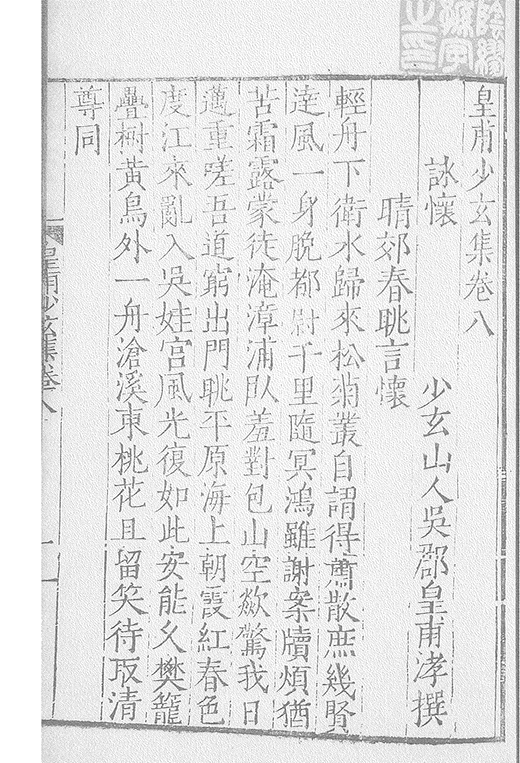 皇甫少玄集卷八
少玄山人吳郡皇甫涍撰
詠懷
晴郊春眺言懷
輕舟下衛水歸來松菊叢自謂得蕭散庶幾賢
達風一身脫都尉千里隨冥鴻雖謝案牘煩猶
苦霜露蒙徒淹漳浦臥羞對包山空欻驚我日
邁重嗟吾道窮出門眺平原海上朝霞紅春色
度江來亂入吳娃宮風光復如此安能久樊籠
疊樹黃鳥外一舟滄溪東桃花且留笑待瓬清
尊同
皇甫少玄集卷八
一